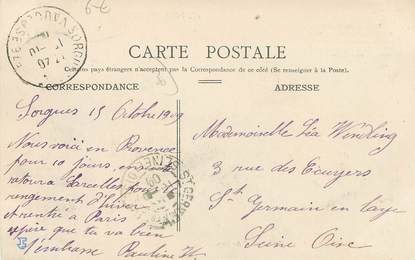 6€
CARTE POSTALE
Certains pays étrangers n'acceptent pas la Correspondance de ce côté (Se renseigner à la Poste).
CORRESPONDANCE
ADRESSE
Sorgues 15 Octobre 1909
Nous voici en Provence
pour 10 jours, ensuite
retour à Sarcelles pour
rangement d'hiver
et rentré à Paris
que tu va bien
Pauline W.
Mademoiselle Léa Wendling
3 rue des Ecuyers
St Germain en Laye
Seine Oise